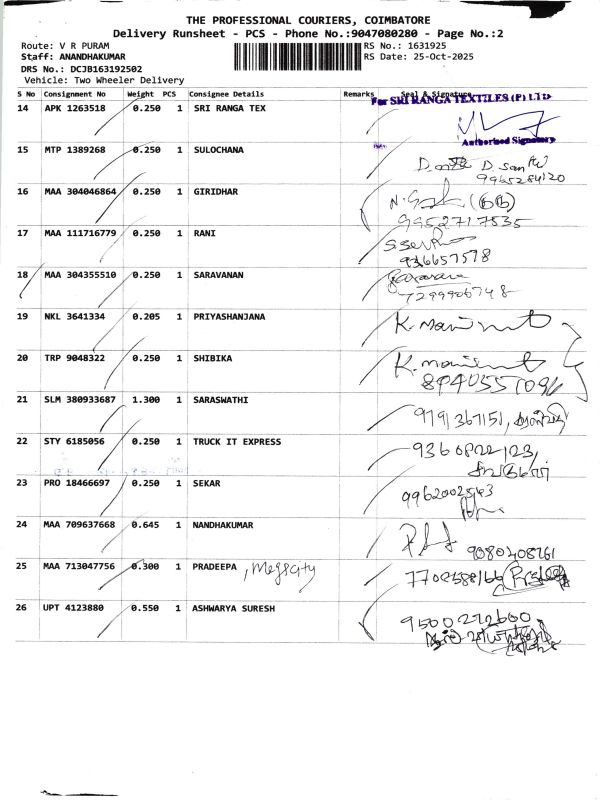 THE PROFESSIONAL COURIERS, COIMBATORE
Delivery Runsheet - PCS - Phone No.:9047080280 - Page No.:2
Route: V R PURAM
RS No.: 1631925
Staff: ANANDHAKUMAR
RS Date: 25-Oct-2025
DRS No.: DCJB163192502
Vehicle: Two Wheeler Delivery
S No Consignment No Weight PCS Consignee Details Remarks Seal & Signature
For SRI RANGA TEXTILES (P) LTD
14 APK 1263518 0.250 1 SRI RANGA TEX
Authorised Signatory
15 MTP 1389268 0.250 1 SULOCHANA
9965284120
16 MAA 304046864 0.250 1 GIRIDHAR
9952717835
17 MAA 111716779 0.250 1 RANI
18 MAA 304355510 0.250 1 SARAVANAN
7299906748
19 NKL 3641334 0.205 1 PRIYASHANJANA
20 TRP 9048322 0.250 1 SHIBIKA
21 SLM 380933687 1.300 1 SARASWATHI
9791367151,
22 STY 6185056 0.250 1 TRUCK IT EXPRESS
23 PRO 18466697 0.250 1 SEKAR
24 MAA 709637668 0.645 1 NANDHAKUMAR
25 MAA 713047756 0.300 1 PRADEEPA , Megacity
26 UPT 4123880 0.550 1 ASHWARYA SURESH
9500272600